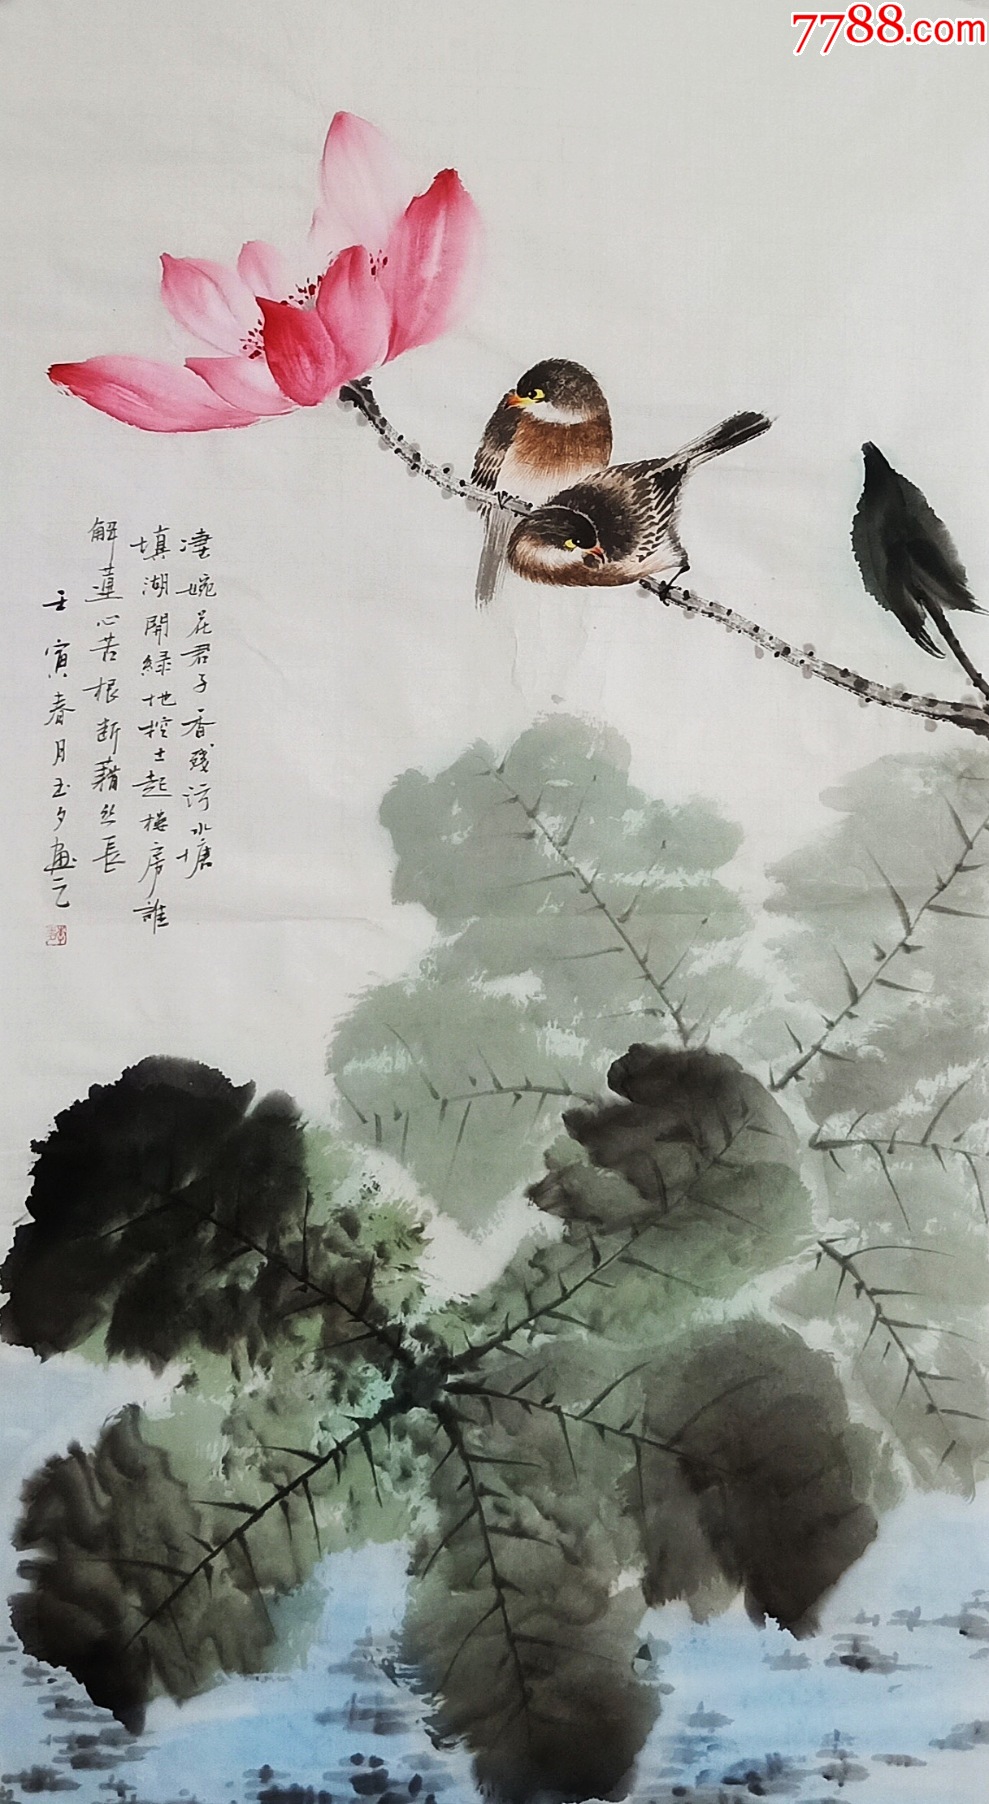 7788.com
淒婉花君子香殘污水塘
填湖開綠地挖土起樓房誰
解蓮心苦根斷藕丝長
壬寅春月玉夕画之